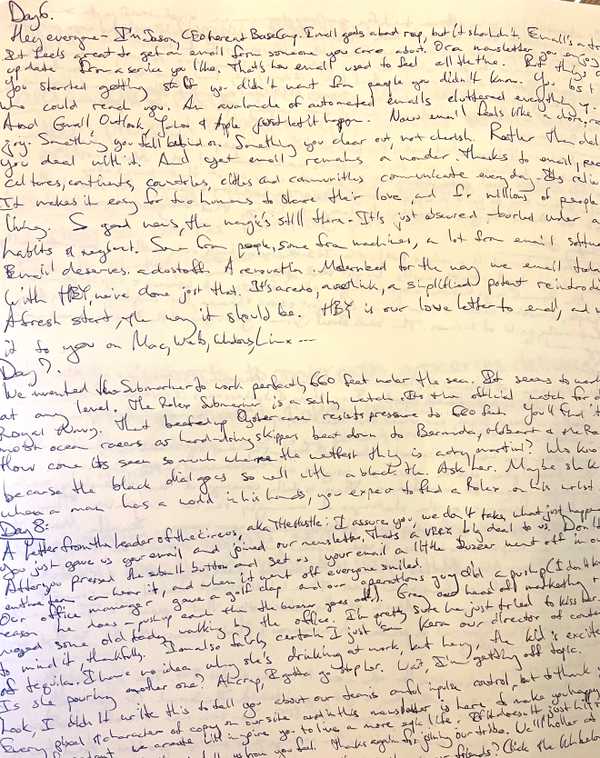 Day 6.
Hey everyone - I'm Jason, CEO here at BaseCamp. Email gets a bad rap, but it shouldn't. Email's a
It feels great to get an email from someone you care about. Or a newsletter you enjoy
update from a service you like. That's how email used to feel all the time. But things
You started getting stuff you didn't want from people you didn't know. You lost
who could reach you. An avalanche of automated emails cluttered everything
And Gmail, Outlook, Yahoo & Apple just let it happen. Now email feels like a chore,
joy. Something you fall behind on. Something you clear out, not cherish. Rather than
you deal with it. And yet email remains a wonder. Thanks to email, peo
cultures, continents, countries, cities and communities communicate everyday. It's
It makes it easy for two humans to share their love, and for millions of people
living. So good news, the magic's still there. It's just obscured - buried under a
habits & neglect. Some from people, some from machines, a lot from email softwa
Email deserves a dust off. A renovation. Modernized for the way we email toda
With HEY, we've done just that. It's a redo, a rethink, a simplified, potent reintrodu
A fresh start, the way it should be. HEY is our love letter to email, and
it to you on Mac, Web, Windows, Linux ---
Day 7.
We invented the Submariner to work perfectly 660 feet under the sea. It seems to work
at any level. The Rolex Submariner is a watch. It's the official watch for
Royal Navy. That beefed up Oyster case resists pressure to 660 feet. You'll find it
most ocean racers as hard-driving skippers beat down to Bermuda, Hobart & the
How come its seen so much where the wettest thing is a dry martini? Who know
because the black dial goes so well with a black tie. Ask her. Maybe she k
when a man has a world in his hands, you expect to find a Rolex on his wrist
Day 8:
A letter from the leader of the circus, aka The Hustle: I assure you, we don't take what just happ
You just gave us your email and joined our newsletter. That's a VERY big deal to us.
After you pressed the submit button and sent us your email a little buzzer went off in ou
entire team can hear it, and when it went off everyone smiled.
Our office manager gave a golf clap and our operations guy did a pushup (I don't k
reason he does a pushup each time the buzzer goes off). Greg our head of marketing
some old lady walking by the office. I'm pretty sure he just tried to kiss her.
to mind it, thankfully. I am also fairly certain I just saw Kara our director of conte
of tequila. I have no idea why she's drinking at work, but hey, the kid's excite
Is she pouring another one? Ah crap, I gotta go stop her. Wait, I'm getting off topic.
Look, I didn't write this to tell you about our team's awful impulse control, but to thank
Every pixel & character of copy on our site and in this newsletter is here to make you happy
we create will inspire you to live a more epic life. If it doesn't just hit
us how you feel. Thanks again for joining our tribe. We'll holler at
friends? Click the